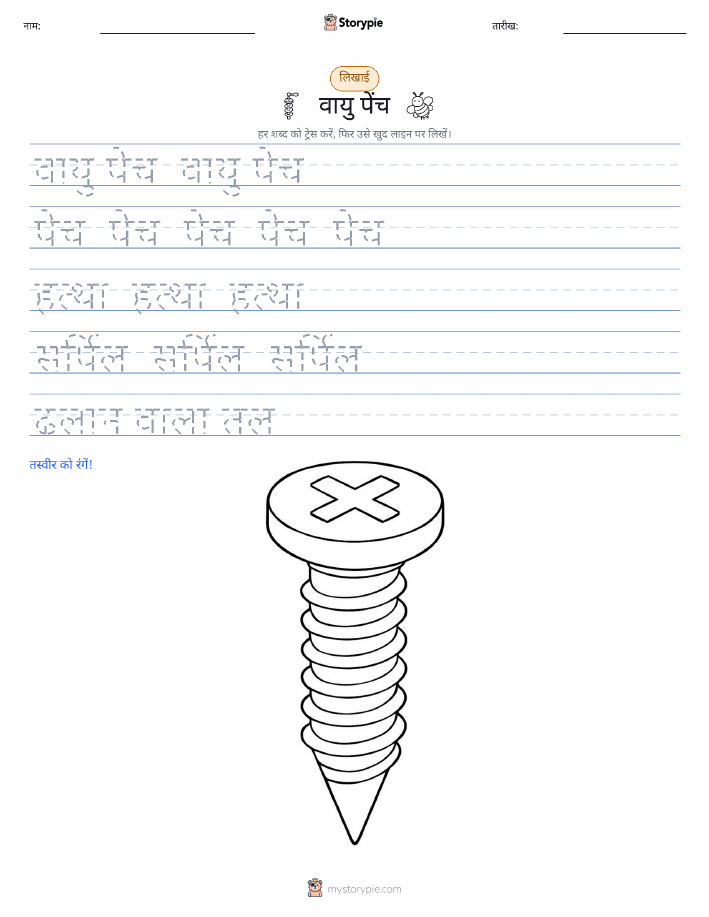 नाम:
Storypie
तारीख:
लिखाई
वायु पेंच
हर शब्द को ट्रेस करें, फिर उसे खुद लाइन पर लिखें।
वायु पेंच वायु पेंच
पेंच पेंच पेंच पेंच पेंच
हत्था हत्था हत्था
सर्पिल सर्पिल सर्पिल
ढलान वाला तल
तस्वीर को रंगें!
mystorypie.com